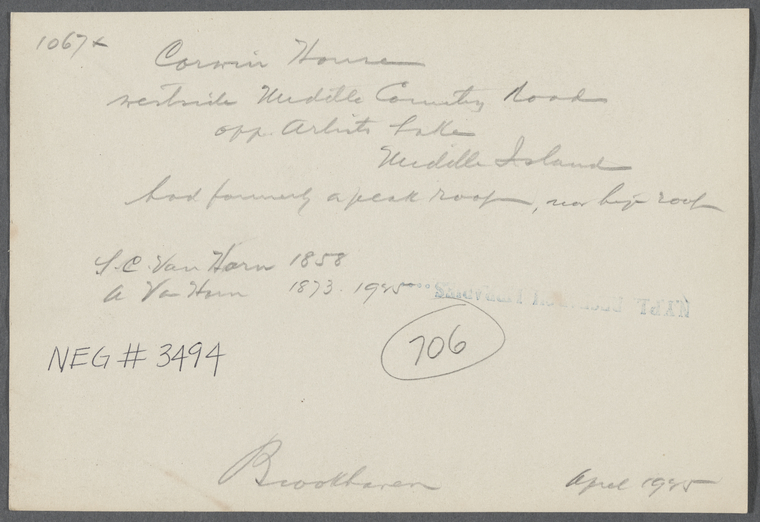 1067+
Corwin House
westside Middle Country Road
opp. Artists Lake
Middle Island
had formerly a peak roof, now hip roof
S. C. Van Horn 1858
A Van Horn 1873 - 1925
NEG # 3494
706
Brookhaven
April 1925